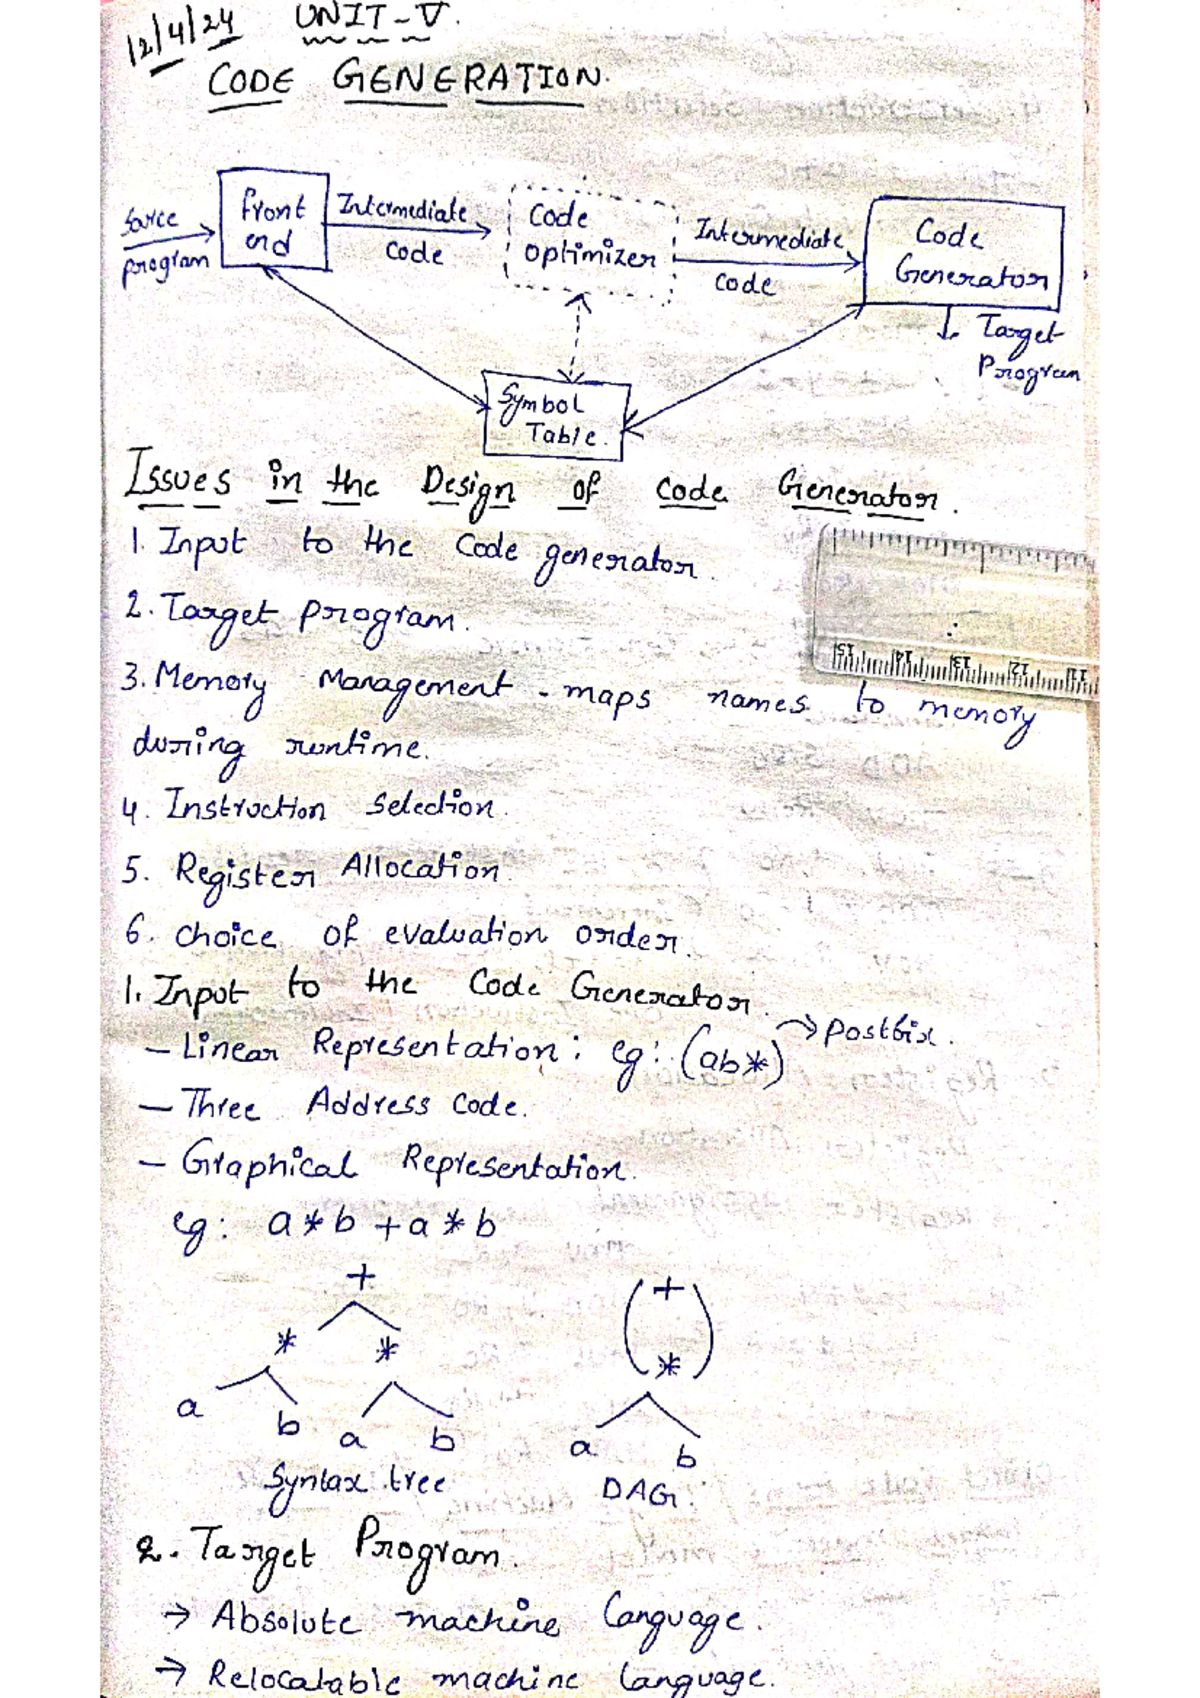 12/4/24 UNIT-V.
CODE GENERATION.
Source program
Front end
Intermediate code
Code optimizer
Intermediate code
Code Generator
Target Program
Symbol Table.
Issues in the Design of code Generator.
1. Input to the code generator.
2. Target program.
3. Memory Management - maps names to memory
during runtime.
4. Instruction selection.
5. Register Allocation.
6. choice of evaluation order.
1. Input to the Code Generator.
- Linear Representation: eg: (ab*) → postfix.
- Three Address code.
- Graphical Representation.
eg: a*b+a*b
+ +
* * *
a b a b a b
Syntax tree DAG.
2. Target Program.
→ Absolute machine language.
→ Relocatable machine language.